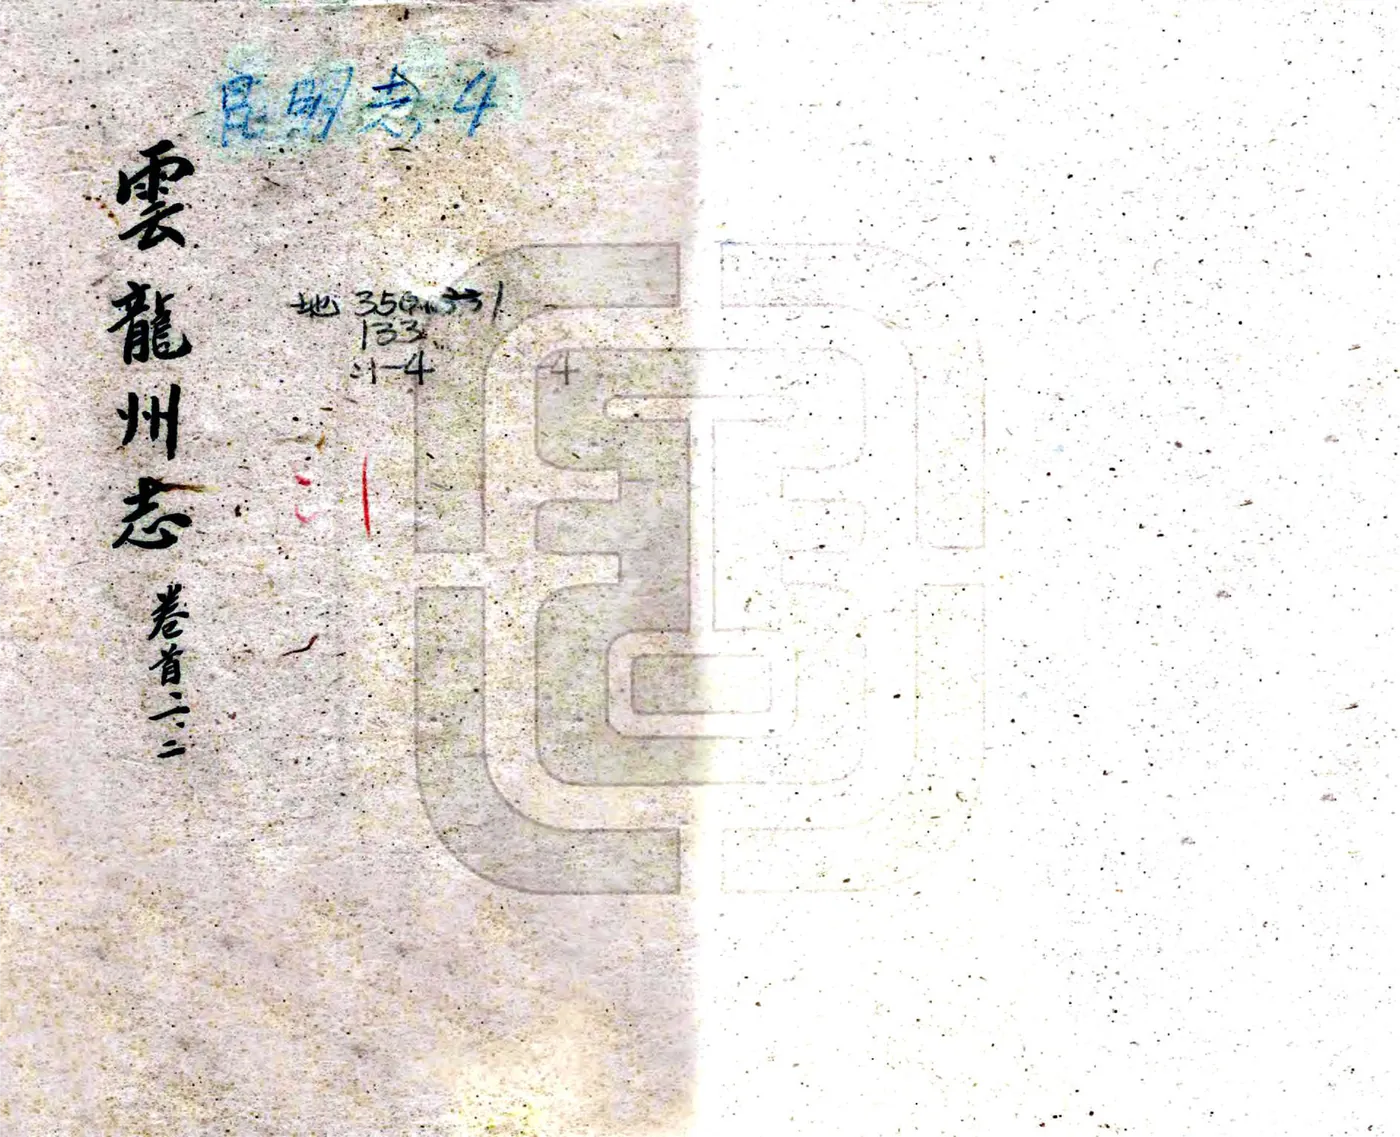 昆明志 4
雲龍州志 卷首 一、二
地 350.
133
:1-4
4